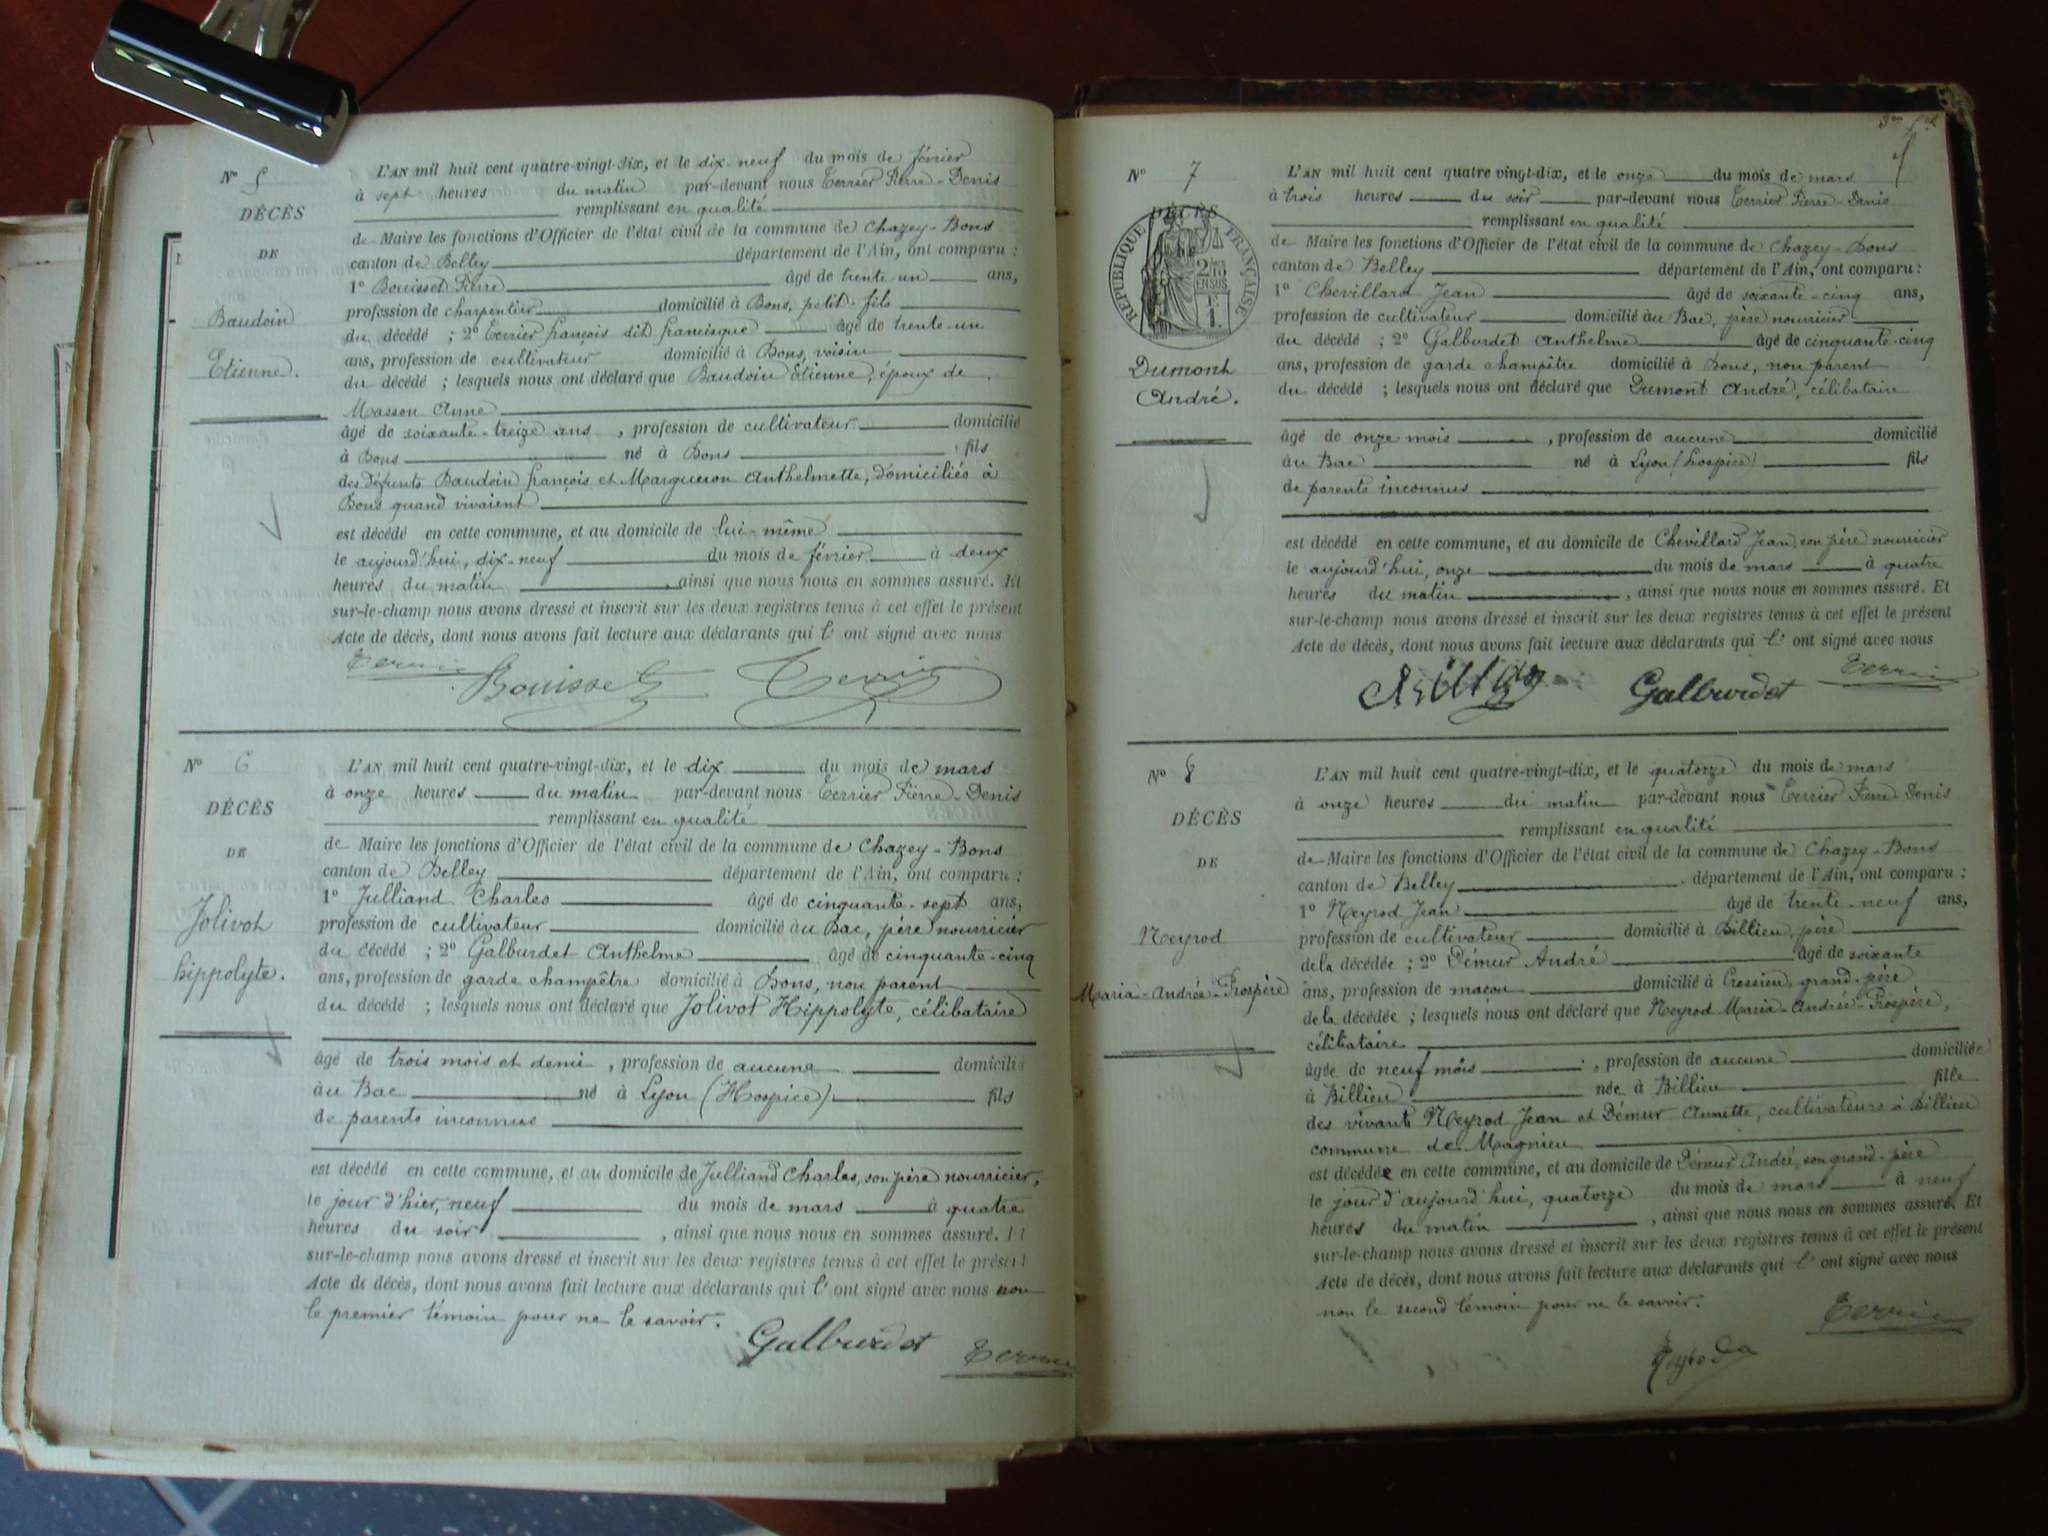 Nº 5
DÉCÈS
DE
Baudoin
Etienne.
L'AN mil huit cent quatre-vingt-dix, et le dix-neuf du mois de février
à sept heures du matin par-devant nous Terrier Pierre-Denis
remplissant en qualité
de Maire les fonctions d'Officier de l'état civil de la commune de Chazey-Bons
canton de Belley département de l'Ain, ont comparu :
1º Bouisset Pierre âgé de trente-un ans,
profession de charpentier domicilié à Bons, petit-fils
du décédé ; 2º Terrier françois dit francisque âgé de trente-un
ans, profession de cultivateur domicilié à Bons, voisin
du décédé ; lesquels nous ont déclaré que Baudoin Etienne, époux de
Masson Anne
âgé de soixante-treize ans, profession de cultivateur domicilié
à Bons né à Bons fils
des défunts Baudoin françois et Margueron Anthelmette, domiciliés à
Bons quand vivaient
est décédé en cette commune, et au domicile de lui-même
le aujourd'hui, dix-neuf du mois de février à deux
heures du matin, ainsi que nous nous en sommes assuré. Et
sur-le-champ nous avons dressé et inscrit sur les deux registres tenus à cet effet le présent
Acte de décès, dont nous avons fait lecture aux déclarants qui l' ont signé avec nous
Terrier Bouisset Terrier
Nº 6
DÉCÈS
DE
Jolivot
hippolyte.
L'AN mil huit cent quatre-vingt-dix, et le dix du mois de mars
à onze heures du matin par-devant nous Terrier Pierre-Denis
remplissant en qualité
de Maire les fonctions d'Officier de l'état civil de la commune de Chazey-Bons
canton de Belley département de l'Ain, ont comparu :
1º Julliand Charles âgé de cinquante-sept ans,
profession de cultivateur domicilié au Bac, père nourricier
du décédé ; 2º Galburdet Anthelme âgé de cinquante-cinq
ans, profession de garde champêtre domicilié à Bons, non parent
du décédé ; lesquels nous ont déclaré que Jolivot Hippolyte, célibataire
âgé de trois mois et demi, profession de aucune domicilié
au Bac né à Lyon (Hospice) fils
de parents inconnus
est décédé en cette commune, et au domicile de Julliand Charles, son père nourricier,
le jour d'hier, neuf du mois de mars à quatre
heures du soir, ainsi que nous nous en sommes assuré. Et
sur-le-champ nous avons dressé et inscrit sur les deux registres tenus à cet effet le présent
Acte de décès, dont nous avons fait lecture aux déclarants qui l' ont signé avec nous non
le premier témoin pour ne le savoir.
Galburdet Terrier
Nº 7
DÉCÈS
RÉPUBLIQUE FRANÇAISE
Dumont
André.
L'AN mil huit cent quatre-vingt-dix, et le onze du mois de mars
à trois heures du soir par-devant nous Terrier Pierre-Denis
remplissant en qualité
de Maire les fonctions d'Officier de l'état civil de la commune de Chazey-Bons
canton de Belley département de l'Ain, ont comparu :
1º Chevillard Jean âgé de soixante-cinq ans,
profession de cultivateur domicilié au Bac, père nourricier
du décédé ; 2º Galburdet Anthelme âgé de cinquante-cinq
ans, profession de garde champêtre domicilié à Bons, non parent
du décédé ; lesquels nous ont déclaré que Dumont André, célibataire
âgé de onze mois, profession de aucune domicilié
au Bac né à Lyon (hospice) fils
de parents inconnus
est décédé en cette commune, et au domicile de Chevillard Jean, son père nourricier
le aujourd'hui, onze du mois de mars à quatre
heures du matin, ainsi que nous nous en sommes assuré. Et
sur-le-champ nous avons dressé et inscrit sur les deux registres tenus à cet effet le présent
Acte de décès, dont nous avons fait lecture aux déclarants qui l' ont signé avec nous
Galburdet Terrier
Nº 8
DÉCÈS
DE
Neyrod
Maria-Andrée-Prospère
L'AN mil huit cent quatre-vingt-dix, et le quatorze du mois de mars
à onze heures du matin par-devant nous Terrier Pierre-Denis
remplissant en qualité
de Maire les fonctions d'Officier de l'état civil de la commune de Chazey-Bons
canton de Belley département de l'Ain, ont comparu :
1º Neyrod Jean âgé de trente-neuf ans,
profession de cultivateur domicilié à Billieu, père
de la décédée ; 2º Démur André âgé de soixante
ans, profession de maçon domicilié à Cressieu, grand-père
de la décédée ; lesquels nous ont déclaré que Neyrod Maria-Andrée-Prospère,
célibataire
âgée de neuf mois, profession de aucune domiciliée
à Billieu née à Billieu fille
des vivants Neyrod Jean et Démur Annette, cultivateurs à Billieu
commune de Magnieu
est décédée en cette commune, et au domicile de Démur André, son grand-père
le jour d'aujourd'hui, quatorze du mois de mars à neuf
heures du matin, ainsi que nous nous en sommes assuré. Et
sur-le-champ nous avons dressé et inscrit sur les deux registres tenus à cet effet le présent
Acte de décès, dont nous avons fait lecture aux déclarants qui l' ont signé avec nous
non le second témoin pour ne le savoir.
Terrier